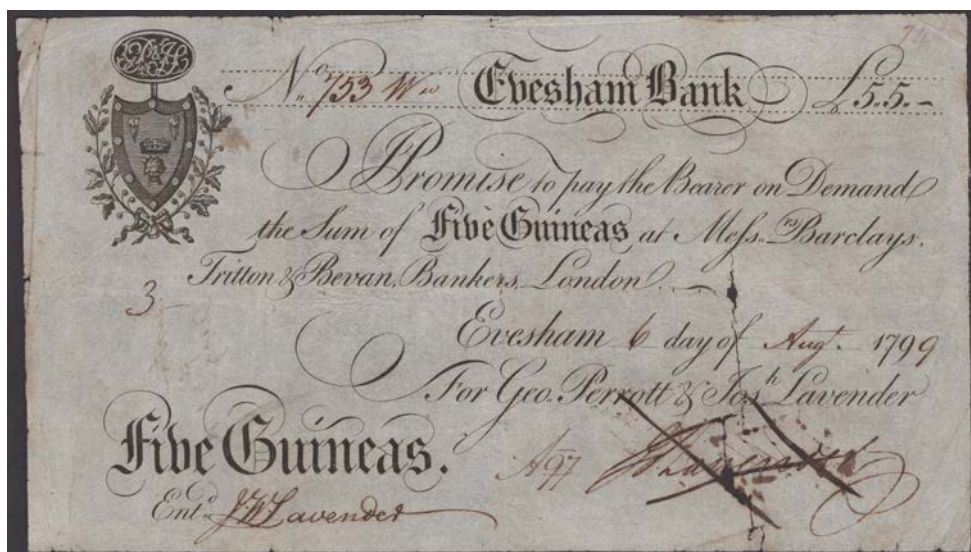 No. 753 Wo Evesham Bank £5..5..-
I Promise to pay the Bearer on Demand
the Sum of Five Guineas at Messrs. Barclays,
Tritton & Bevan, Bankers, London.
3
Evesham 6 day of Augt. 1799
For Geo. Perrott & Josh. Lavender
Five Guineas.
Entd. Lavender